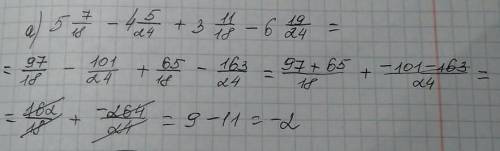 a) 5 7/18 - 4 5/24 + 3 11/18 - 6 19/24 =
= 97/18 - 101/24 + 65/18 - 163/24 = (97+65)/18 + (-101-163)/24 =
= 162/18 + (-264)/24 = 9 - 11 = -2